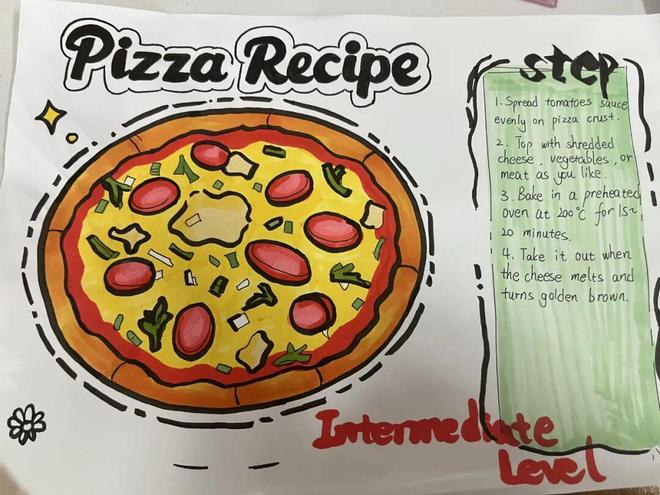 Pizza Recipe
step
1. Spread tomatoes sauce
evenly on pizza crust.
2. Top with shredded
cheese, vegetables, or
meat as you like.
3. Bake in a preheated
oven at 200°C for 15~
20 minutes.
4. Take it out when
the cheese melts and
turns golden brown.
Intermediate
Level